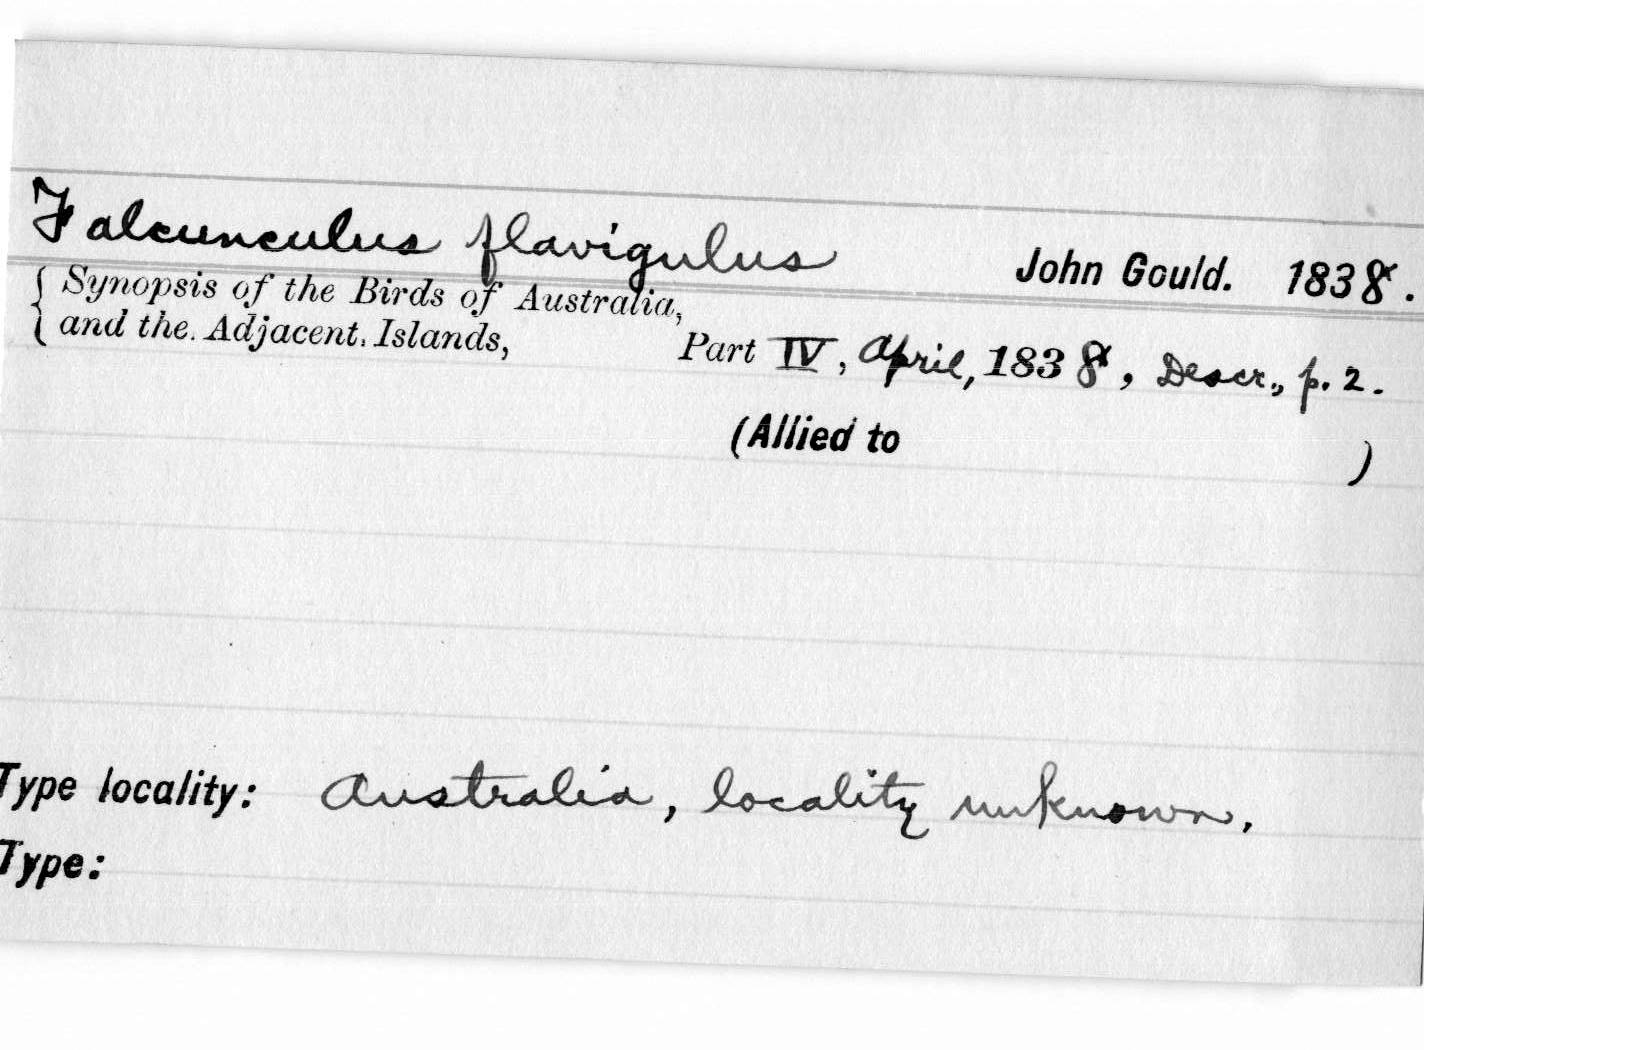 Falcunculus flavigulus John Gould. 1838.
{ Synopsis of the Birds of Australia,
and the. Adjacent. Islands, Part IV, April, 1838, Descr., p. 2.
(Allied to )
Type locality: Australia, locality unknown.
Type: